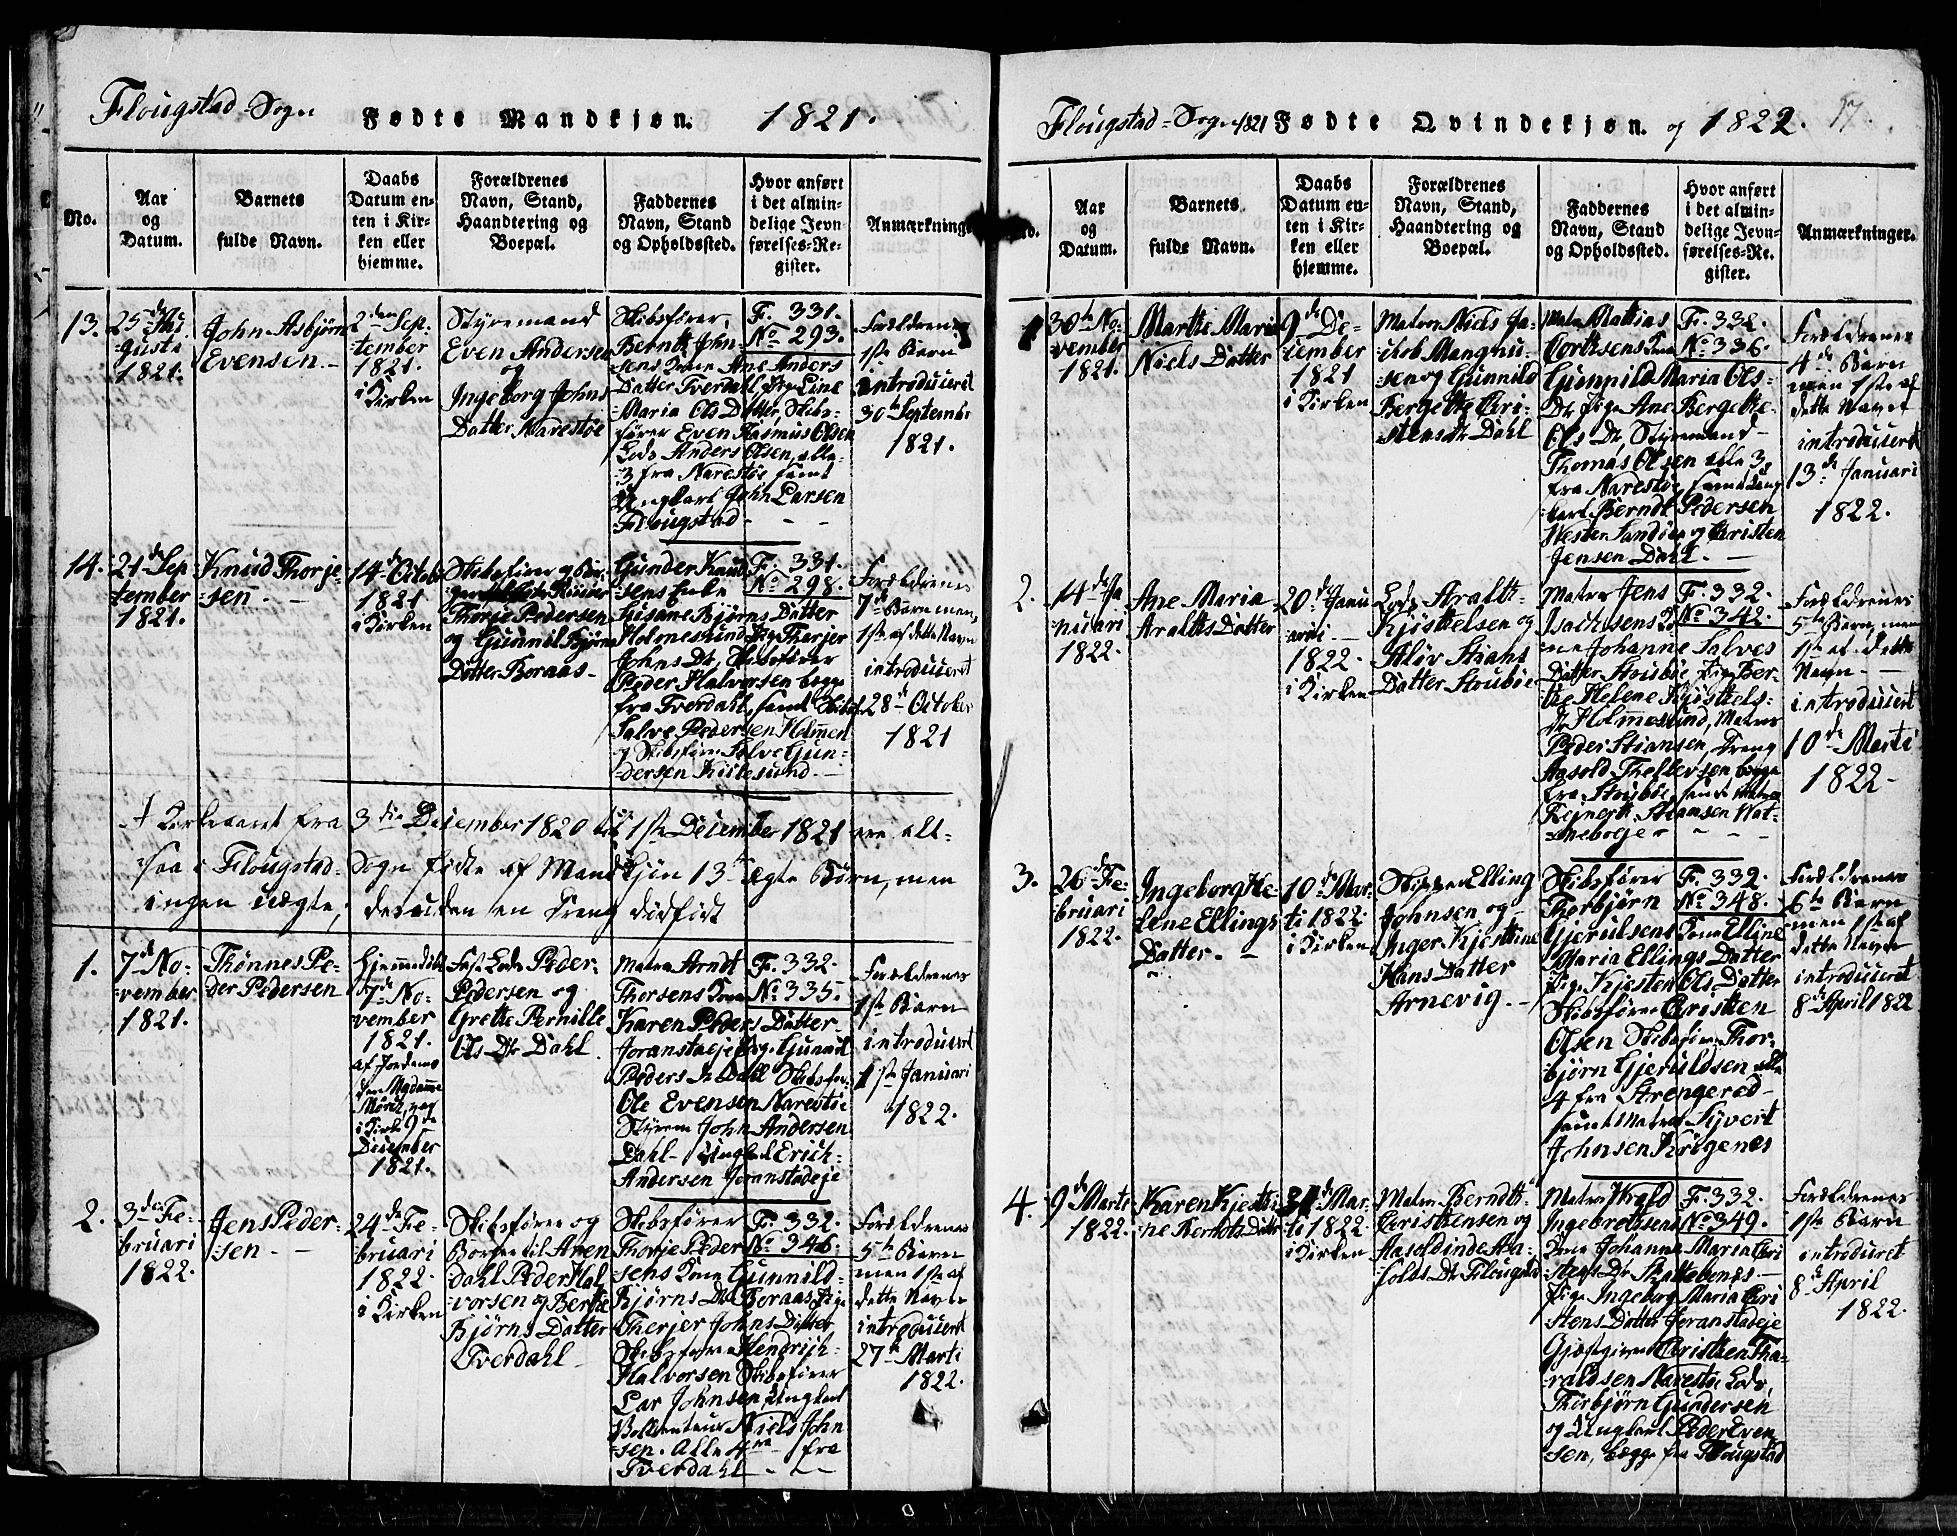 Flougstad-Sogn Fødte Mandkjøn. 1821.
No.
Aar
og
Datum.
Barnets
fulde Navn.
Daabs
Datum en-
ten i Kir-
ken eller
hjemme.
Forældrenes
Navn, Stand,
Haandtering og
Boepæl.
Faddernes
Navn, Stand
og Opholdssted.
Hvor anført
i det almin-
delige Jevn-
førelses-Re-
gister.
Anmærkninge
13.
25de Au-
gusti
1821.
John Asbjørn
Evensen.
2den Sep-
tember
1821.
i Kirken
Styremand
Even Andersen
og
Ingeborg Johns
Datter Narestøe
Skibsfører
Berntt John-
sens Kone Ane Anders
Datter Tverdahl, Pige Line
Maria Ols Datter, Skibs-
fører Even Rasmus Olsen
Lods Anders Olsen, alle
3 fra Narestøe samt
Ungkarl John Larsen
Flougstad
F. 331.
No 293.
Forældrenes
1ste Barn
introduceret
30te Septembr
1821.
14.
21de Sep
tember
1821.
Knud Thorje-
sen.
14de Octobr
1821
i Kirken
Skibsfører og
Thorje Pedersen
og Gunnil Bjørns
Datter Boraas
Gunder Knud
sens Enke
Susanne Bjørns Datter
Holmesund, Pig Therjer
Johns Dtr, Skibsfører
Peder Halvorsen begge
fra Tverdahl, samt Skibsfr
Salve Pedersen Holmen
og Skibsfører Salve Gun-
dersen Kilesund.
F. 331.
No 298.
Forældrenes
7de Barn men
1ste af dette Navn
introduceret
28de October
1821
I Kirkeaaret fra 3die December 1820 til 1ste December 1821 ere alt-
saa i Flougstad-Sogn fødte af Mandkjøn 13 ægte Børn, men
ingen uægte, desuden en Dreng dødfødt
1.
7de No-
vember
1821.
Thønnes Pe-
der Pedersen
Hjemmedøbt
7de No-
vember
1821.
af Jordemo
der Madame
Mörch, og
i Kirk 9de
December
1821.
Fast Lods Peder
Pedersen og
Grethe Pernille
Ols Dtr Dahl.
Matros Arndt
Thorsens Kone
Karen Peders Datter
Joranstadeje Pige Gunnil
Peders Dtr Dahl Skibsfør
Ole Evensen Narestøe
Styrem John Andersen
Dahl Ungkarl Erich
Andersen Joranstadeje
F. 332.
No 335.
Forældrenes
1ste Barn
introduceret
1ste Januari
1822.
2.
3die Fe-
bruari
1822.
Jens Peder-
sen.
24de Fe-
bruari
1822.
i Kirken
Skibsfører og
Borger til Aren
dahl Peder Hal
vorsen og Berthe
Bjørns Datter
Tverdahl
Skibsfører
Thorje Peder
sens Kone Gunnild
Bjørns Dtr Boraas, Pige
Therjer Johns Datter
Skibsfører Hendrich
Halvorsen Skibsfører
Lar Johnsen, Ungkarl
Niels John
sen. Alle 4re fra
Tverdahl
F. 332.
No 346.
Forældrenes
5te Barn
men 1ste af
dette Navn
introduceret
27de Marti
1822.
Flougstad-Sogn 1821 Fødte Qvindekjøn. og 1822. 17.
No.
Aar
og
Datum.
Barnets
fulde Navn.
Daabs
Datum en-
ten i Kir-
ken eller
hjemme.
Forældrenes
Navn, Stand,
Haandtering og
Boepæl.
Faddernes
Navn, Stand
og Opholdssted.
Hvor anført
i det almin-
delige Jevn-
førelses-Re-
gister.
Anmærkninger.
1
30te No-
vember
1821.
Marthe Maria
Niels Datter
9de De-
cember
1821
i Kirken
Matros Niels Ja-
cob Mangnu-
sen og Gunnild
Bergethe Chri-
stens Dtr Dahl
Matros Mathias
Corthsens Kone
Gunnild Maria Ols-
Dtr Pige Ane Bergethe
Ols Dtr, Styremand
Thomas Olsen alle 3
fra Narestøe, samt Ung
karl Berndt Pedersen
Westen Sandøe og Christen
Jensen Dahl.
F. 332.
No 336.
Forældrenes
4de Barn
men 1ste af
dette Navn
introduceret
13de Januari
1822.
2.
14de Ja
nuari
1822.
Ane Maria
Aralts Datter
20de Janu
arii
1822.
i Kirken
Lods Aralth
Kjøstelsen og
Sløv Stians
Datter Stoubøe
Matros Jens
Isachsens Ko
ne Johanne Salves
Datter Stoubøe, Pige Ber-
the Helene Kjøstels
Dtr Holmesund, Matros
Peder Stiansen, Dreng
Aasold Thellevsen begge
fra Stoubøe, samt Matros
Rejnerth Stiansen Wat-
neboeje
F. 332.
No 342.
Forældrenes
5te Barn, men
1ste af dette
Navn
introduceret
10de Marti
1822
3.
26de Fe-
bruari
1822.
Ingeborg He-
lene Ellings
Datter.
10de Mar-
ti 1822.
i Kirken
Skipper Elling
Johnsen og
Inger Kjestine
Hans Datter
Arnevig.
Skibsfører
Thorbjørn
Gjeruldsens Kone Elline
Maria Ellings Datter
Pige Kjesten Ols Datter
Skibsfører Christen
Olsen Skibsfører Thor-
bjørn Gjeruldsen alle
4 fra Strengered
samt Matros Sivert
Johnsen Krøgenes
F. 332.
No 348.
Forældrenes
6te Barn
men 1ste af
dette Navn
introduceret
8de April 1822
4.
9de Marti
1822.
Karen Kjesti-
ne Berndts Dattr
31de Mar-
ti 1822
i Kirken
Matros Berndth
Christensen og
Aasoldinde Aa-
solds Dtr Flougstad
Matros Harald
Ingebretsens
Kone Johanna Maria Chri
stens Dtr
Pige Ingeborg Maria Chri
stens Datter Joranstadeje
Gjæstgiver Christen Tha-
raldsen Narestøe Lods
Thorbjørn Gundersen
og Ungkarl Peder Even
sen, begge fra Flougstad
F. 332.
No 349.
Forældrenes
1ste Barn
introduceret
8de April
1822.